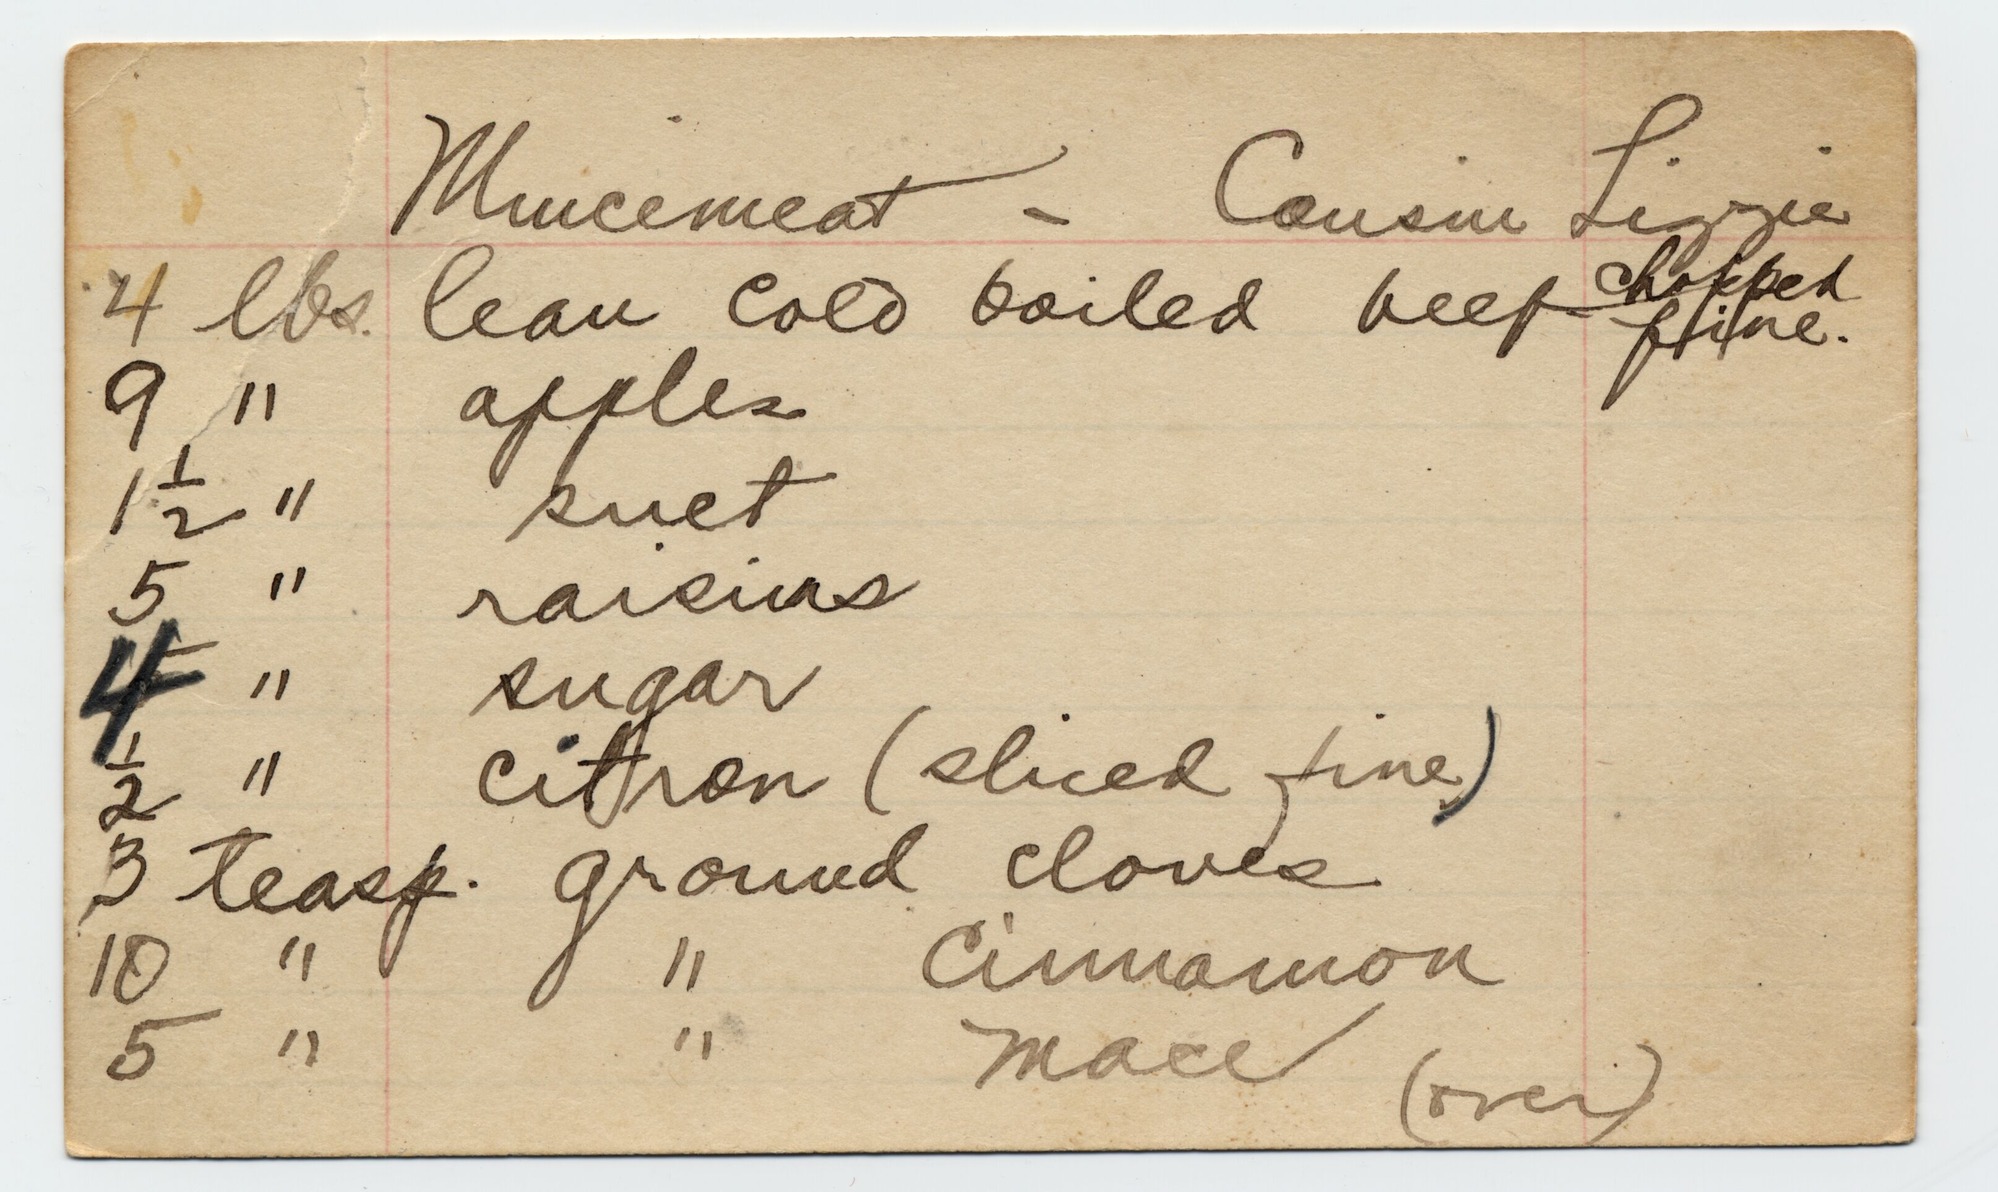 Mincemeat - Cousin Lizzie
4 lbs. lean cold boiled beef - chopped fine.
9 " apples
1 1/2 " suet
5 " raisins
4 " sugar
1/2 " citron (sliced fine)
3 teasp. ground cloves
10 " " Cinnamon
5 " " mace
(over)